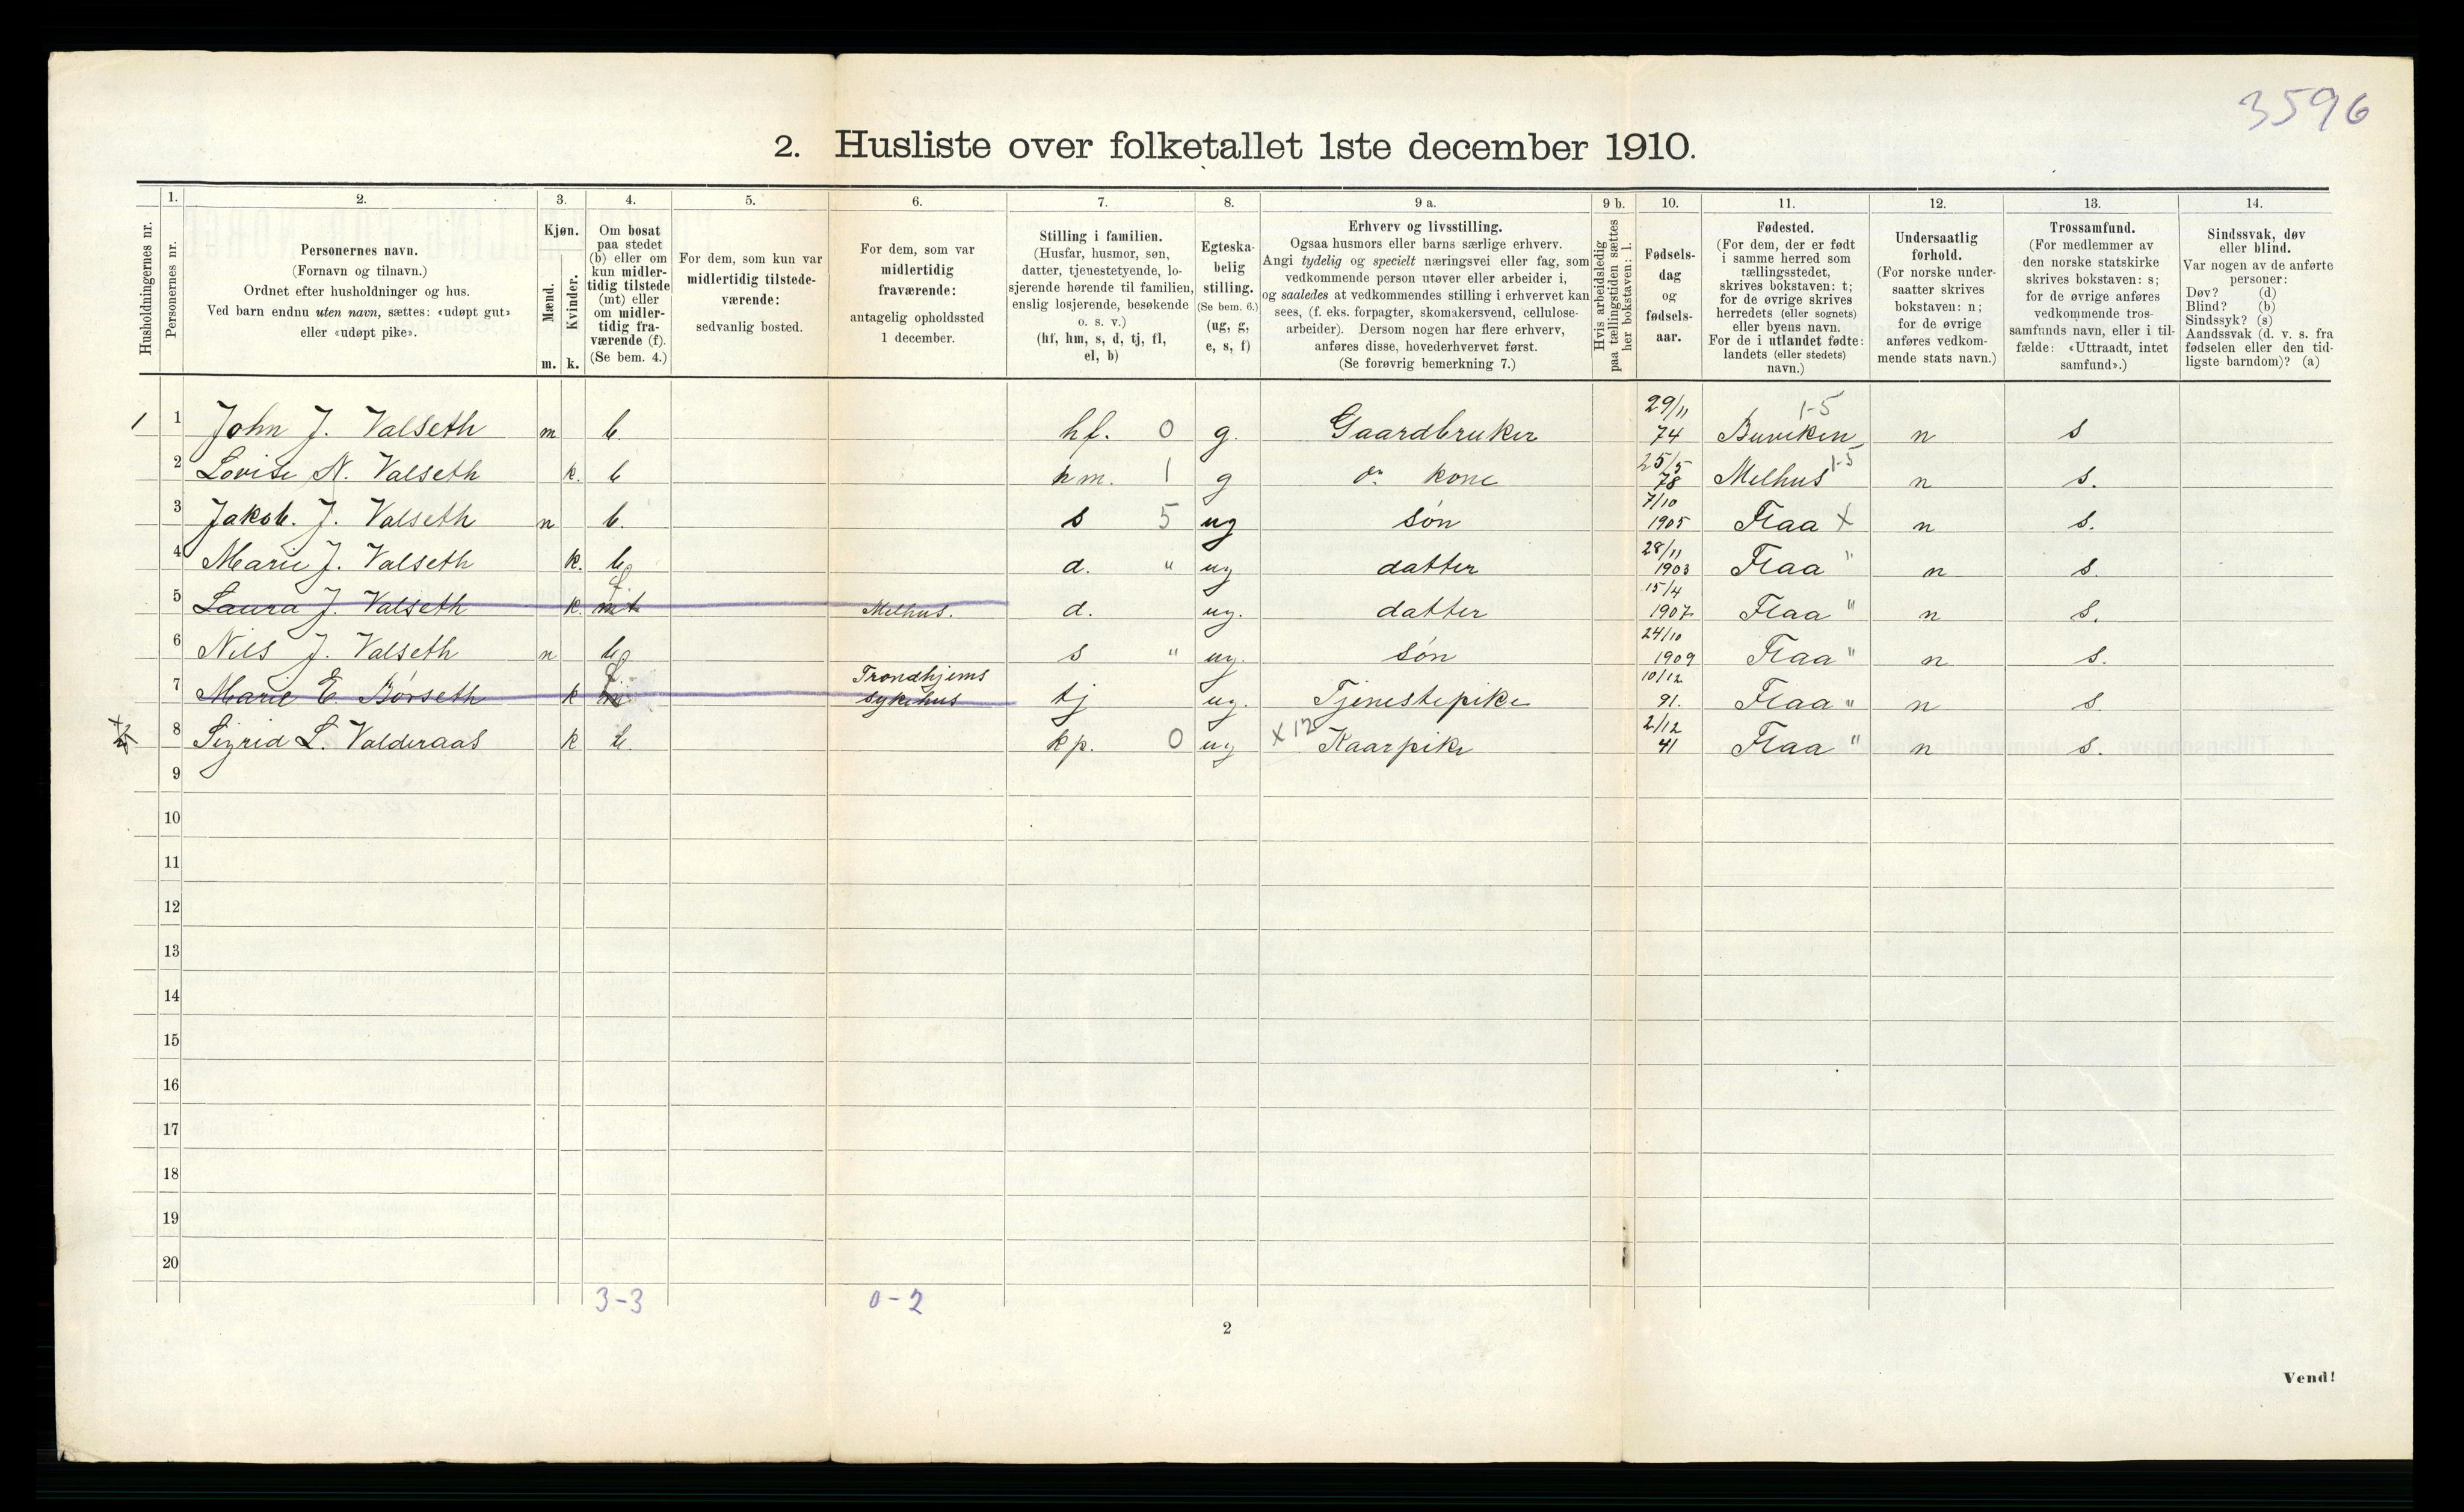 3596
2. Husliste over folketallet 1ste december 1910.
Husholdningernes nr.
1.
Personernes nr.
2.
Personernes navn.
(Fornavn og tilnavn.)
Ordnet efter husholdninger og hus.
Ved barn endnu uten navn, sættes: «udøpt gut»
eller «udøpt pike».
3.
Kjøn.
Mænd.
Kvinder.
m. k.
4.
Om bosat
paa stedet
(b) eller om
kun midler-
tidig tilstede
(mt) eller
om midler-
tidig fra-
værende (f).
(Se bem. 4.)
5.
For dem, som kun var
midlertidig tilstede-
værende:
sedvanlig bosted.
6.
For dem, som var
midlertidig
fraværende:
antagelig opholdssted
1 december.
7.
Stilling i familien.
(Husfar, husmor, søn,
datter, tjenestetyende, lo-
sjerende hørende til familien,
enslig losjerende, besøkende
o. s. v.)
(hf, hm, s, d, tj, fl,
el, b)
8.
Egteska-
belig
stilling.
(Se bem. 6.)
(ug, g,
e, s, f)
9 a.
Erhverv og livsstilling.
Ogsaa husmors eller barns særlige erhverv.
Angi tydelig og specielt næringsvei eller fag, som
vedkommende person utøver eller arbeider i,
og saaledes at vedkommendes stilling i erhvervet kan
sees, (f. eks. forpagter, skomakersvend, cellulose-
arbeider). Dersom nogen har flere erhverv,
anføres disse, hovederhvervet først.
(Se forøvrig bemerkning 7.)
9 b.
Hvis arbeidsledig
paa tællingstiden sættes
her bokstaven: l.
10.
Fødsels-
dag
og
fødsels-
aar.
11.
Fødested.
(For dem, der er født
i samme herred som
tællingsstedet,
skrives bokstaven: t;
for de øvrige skrives
herredets (eller sognets)
eller byens navn.
For de i utlandet fødte:
landets (eller stedets)
navn.)
12.
Undersaatlig
forhold.
(For norske under-
saatter skrives
bokstaven: n;
for de øvrige
anføres vedkom-
mende stats navn.)
13.
Trossamfund.
(For medlemmer av
den norske statskirke
skrives bokstaven: s;
for de øvrige anføres
vedkommende tros-
samfunds navn, eller i til-
fælde: «Uttraadt, intet
samfund».)
14.
Sindssvak, døv
eller blind.
Var nogen av de anførte
personer:
Døv? (d)
Blind? (b)
Sindssyk? (s)
Aandssvak (d. v. s. fra
fødselen eller den tid-
ligste barndom)? (a)
1 1 John J. Valseth m b. hf. 0 g. Gaardbruker 29/11 74 Buviken 1-5 n s
2 Lovise N. Valseth k. b hm. 1 g do kone 25/5 78 Melhus 1-5 n s.
3 Jakob. J. Valseth m b. s 5 ug søn 7/10 1905 Flaa X n s.
4 Marie J. Valseth k. b d. " ug datter 28/11 1903 Flaa " n s.
5 Laura J. Valseth k. mt f Melhus. d. ug. datter 15/4 1907 Flaa " n s.
6 Nils J. Valseth m b s " ug. søn 24/10 1909 Flaa " n s.
7 Marie E. Børseth k f Trondhjems sykehus tj ug. Tjenestepike 10/12 91. Flaa " n s.
8 Sigrid L. Valderaas k b. kp. 0 ug X 12 Kaarpike 2/12 41 Flaa " n s.
9
10
11
12
13
14
15
16
17
18
19
20
3-3 0-2
2
Vend!